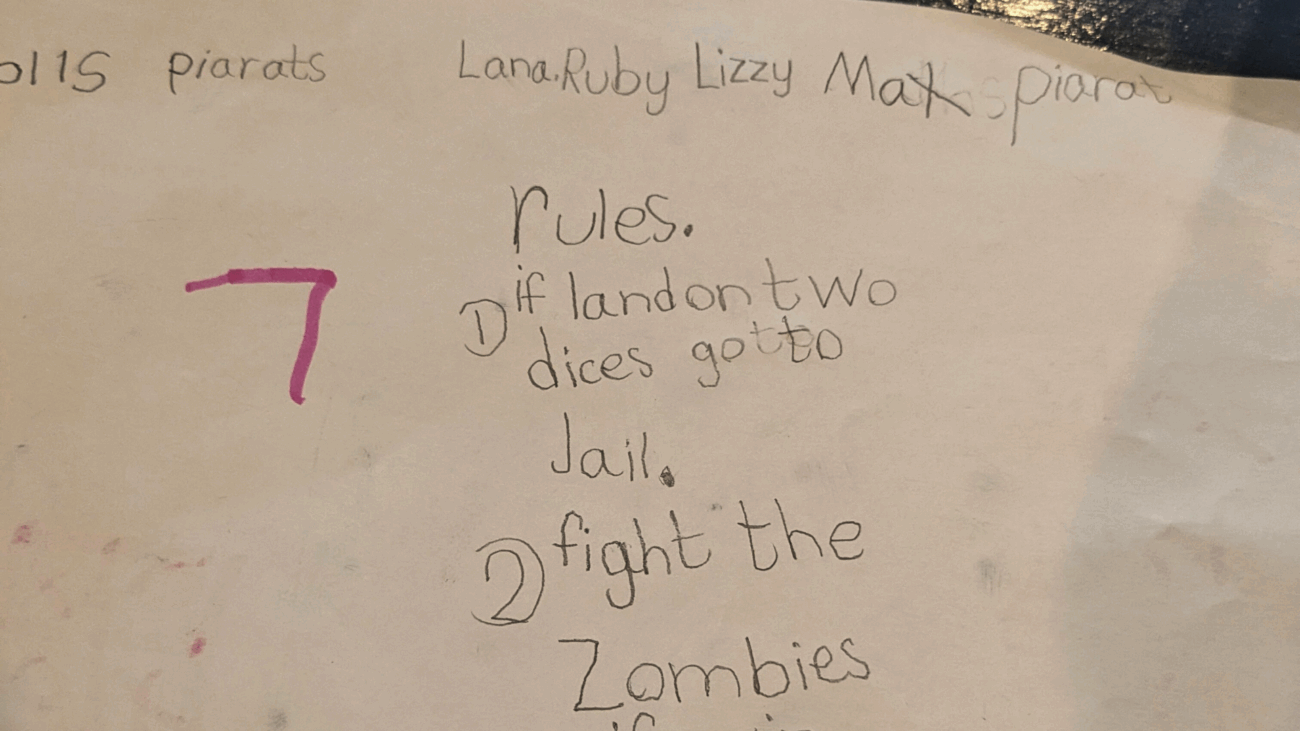 piarats Lana. Ruby Lizzy Max piarat
7
rules.
① if land on two
dices got to
Jail.
② fight the
Zombies